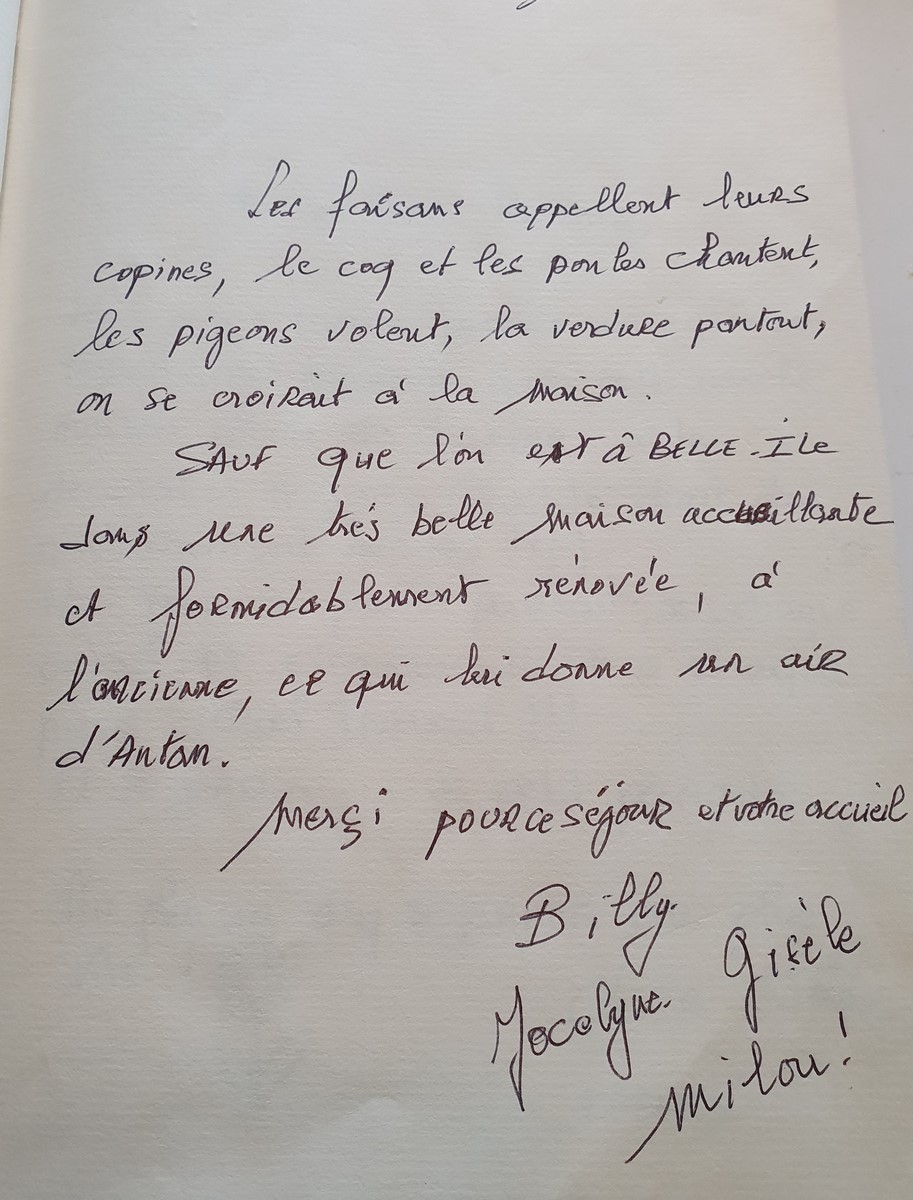 Les faisans appellent leurs
copines, le coq et les poules chantent,
les pigeons volent, la verdure partout,
on se croirait à la maison.
SAUF que l'on est à BELLE-ILe
dans une très belle maison accueillante
et formidablement rénovée, à
l'ancienne, ce qui lui donne un air
d'Antan.
Merçi pour ce séjour et votre accueil
Billy.
Gisèle
Jocelyne.
Milou!